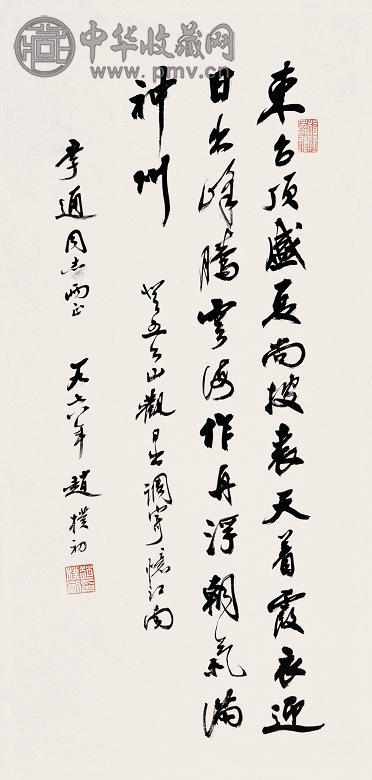 中华收藏网
www.pmv.cn
東台頂盛夏尚披裘天着霞衣迎
日出峰騰雲海作舟浮朝氣滿
神州
登五台山觀日出調寄憶江南
孝通同志兩正 一九七八年 趙樸初